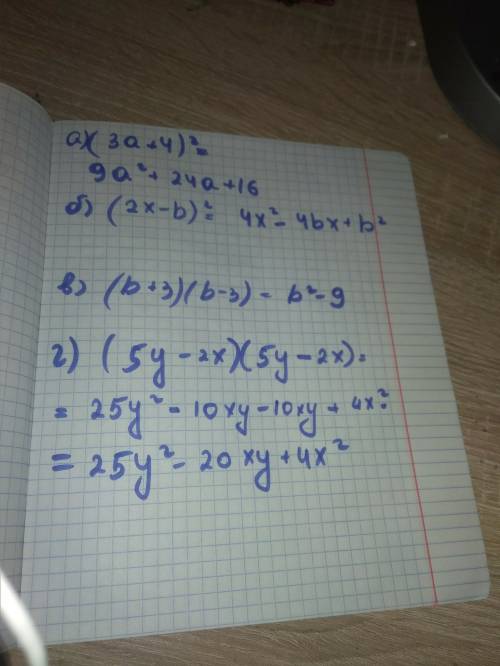 а)(3a+4)²=
9a²+24a+16
б) (2x-b)²= 4x²-4bx+b²
в) (b+3)(b-3) = b²-9
г) (5y-2x)(5y-2x)=
= 25y²-10xy-10xy+4x²=
= 25y²-20xy+4x²